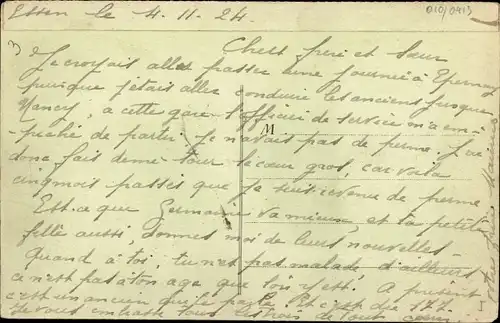 Essen le 4.11.24.
010/0413
3
Chers frère et Sœur
Je croyais aller passer une journée à Epernay
puisque j'étais aller conduire les anciens jusque
Nancy, a cette gare l'officier de service m'a em-
-pêché de partir. Je n'avais pas de perme. J'ai
M
donc fait demi-tour le cœur gros, car voila
cinq mois passés que je suis revenu de perme
Est-ce que Germaine va mieux, et ta petite
fille aussi, donnes moi de leurs nouvelles
Quand à toi, tu n'est pas malade d'ailleurs
ce n'est pas à ton age que l'on y est. A présent
c'est un ancien qui te parle. Et c'est du
Je vous embrasse tous les trois de tout cœur